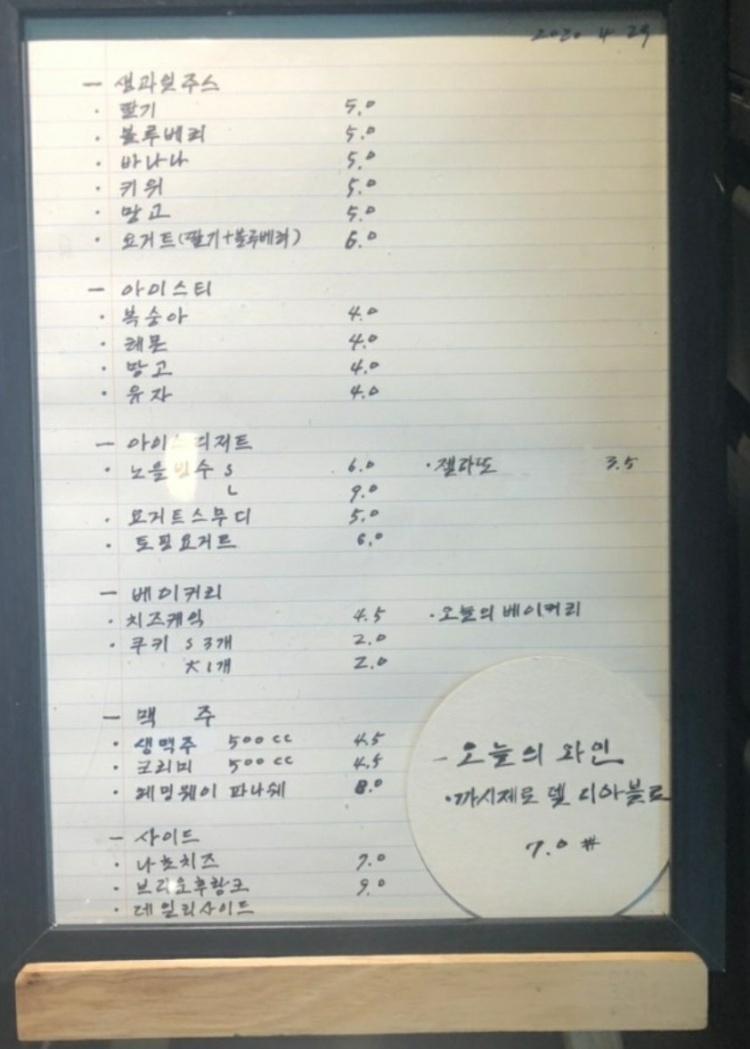 2020 4 29
— 생과일주스
· 딸기 5.0
· 블루베리 5.0
· 바나나 5.0
· 키위 5.0
· 망고 5.0
· 요거트(딸기+블루베리) 6.0
— 아이스티
· 복숭아 4.0
· 레몬 4.0
· 망고 4.0
· 유자 4.0
— 아이스디저트
· 노을빙수 S 6.0 · 젤라또 3.5
L 9.0
· 요거트스무디 5.0
· 토핑요거트 6.0
— 베이커리
· 치즈케익 4.5 · 오늘의 베이커리
· 쿠키 S 3개 2.0
大 1개 2.0
— 맥 주
· 생맥주 500 cc 4.5
· 크리미 500 cc 4.5
· 헤밍웨이 파나쉐 8.0
— 사이드
· 나쵸치즈 7.0
· 브리오후랑크 9.0
· 데일리사이드
- 오늘의 와인
· 까시제로 델 디아블로
7.0 #